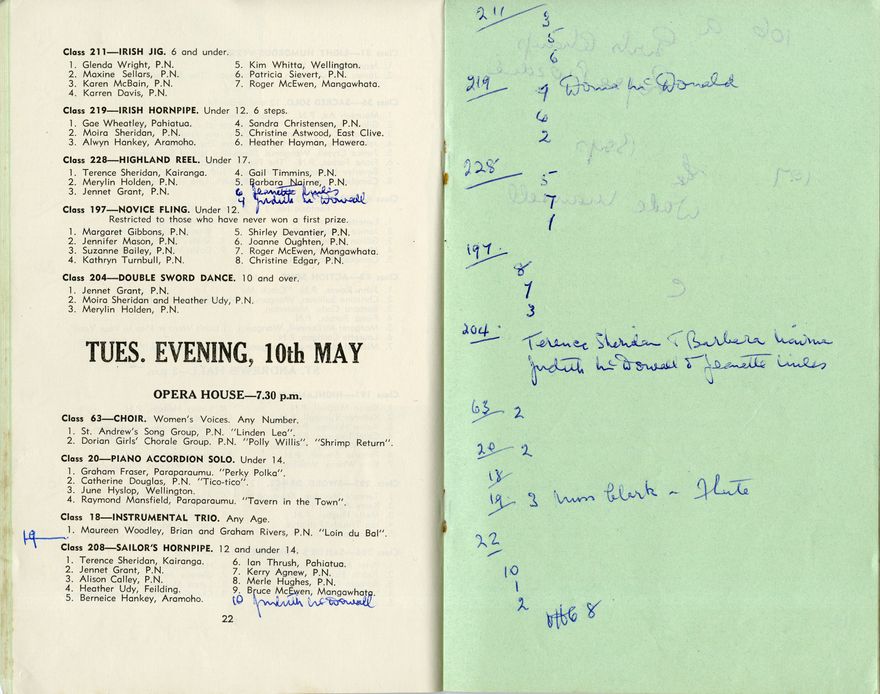 Class 211—IRISH JIG. 6 and under.
1. Glenda Wright, P.N.
2. Maxine Sellars, P.N.
3. Karen McBain, P.N.
4. Karren Davis, P.N.
5. Kim Whitta, Wellington.
6. Patricia Sievert, P.N.
7. Roger McEwen, Mangawhata.
Class 219—IRISH HORNPIPE. Under 12. 6 steps.
1. Gae Wheatley, Pahiatua.
2. Moira Sheridan, P.N.
3. Alwyn Hankey, Aramoho.
4. Sandra Christensen, P.N.
5. Christine Astwood, East Clive.
6. Heather Hayman, Hawera.
Class 228—HIGHLAND REEL. Under 17.
1. Terence Sheridan, Kairanga.
2. Merylin Holden, P.N.
3. Jennet Grant, P.N.
4. Gail Timmins, P.N.
5. Barbara Nairne, P.N.
6 Jeanette Miles
4 Judith McDowall
Class 197—NOVICE FLING. Under 12.
Restricted to those who have never won a first prize.
1. Margaret Gibbons, P.N.
2. Jennifer Mason, P.N.
3. Suzanne Bailey, P.N.
4. Kathryn Turnbull, P.N.
5. Shirley Devantier, P.N.
6. Joanne Oughten, P.N.
7. Roger McEwen, Mangawhata.
8. Christine Edgar, P.N.
Class 204—DOUBLE SWORD DANCE. 10 and over.
1. Jennet Grant, P.N.
2. Moira Sheridan and Heather Udy, P.N.
3. Merylin Holden, P.N.
TUES. EVENING, 10th MAY
OPERA HOUSE—7.30 p.m.
Class 63—CHOIR. Women's Voices. Any Number.
1. St. Andrew's Song Group, P.N. "Linden Lea".
2. Dorian Girls' Chorale Group. P.N. "Polly Willis". "Shrimp Return".
Class 20—PIANO ACCORDION SOLO. Under 14.
1. Graham Fraser, Paraparaumu. "Perky Polka".
2. Catherine Douglas, P.N. "Tico-tico".
3. June Hyslop, Wellington.
4. Raymond Mansfield, Paraparaumu. "Tavern in the Town".
Class 18—INSTRUMENTAL TRIO. Any Age.
1. Maureen Woodley, Brian and Graham Rivers, P.N. "Loin du Bal".
19
Class 208—SAILOR'S HORNPIPE. 12 and under 14.
1. Terence Sheridan, Kairanga.
2. Jennet Grant, P.N.
3. Alison Calley, P.N.
4. Heather Udy, Feilding.
5. Berneice Hankey, Aramoho.
6. Ian Thrush, Pahiatua.
7. Kerry Agnew, P.N.
8. Merle Hughes, P.N.
9. Bruce McEwen, Mangawhata.
10 Judith McDowall
22
211 3
5
6
219 7 Donna McDonald
6
2
228 5
7
1
197 8
7
3
204 Terence Sheridan & Barbara Nairne
Judith McDowall & Jeanette Miles
63 2
20 2
18
19 3 Miss Clark - Flute
22
10
1
2
8